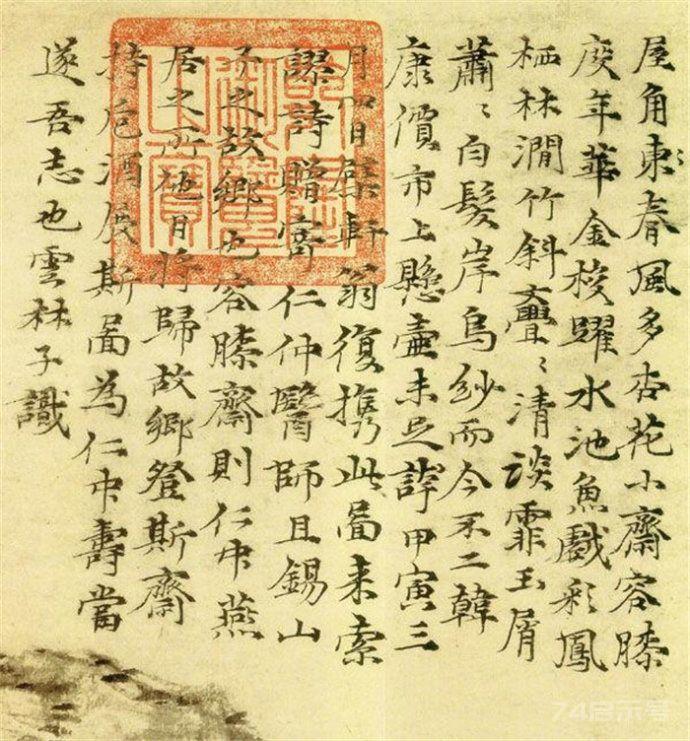 屋角東春風多杏花小齋容膝
度年華金梭躍水池魚戲彩鳳
栖林澗竹斜亹〻清談霏玉屑
蕭〻白髮岸烏紗而今不二韓
康價市上懸壺未足誇甲寅三
月四日檗軒翁復攜此圖來索
謬詩贈寄仁仲醫師且錫山
予之故鄉也容膝齋則仁中燕
居之所他日將歸故鄉登斯齋
持卮酒展斯圖為仁中壽當
遂吾志也雲林子識
74启示号